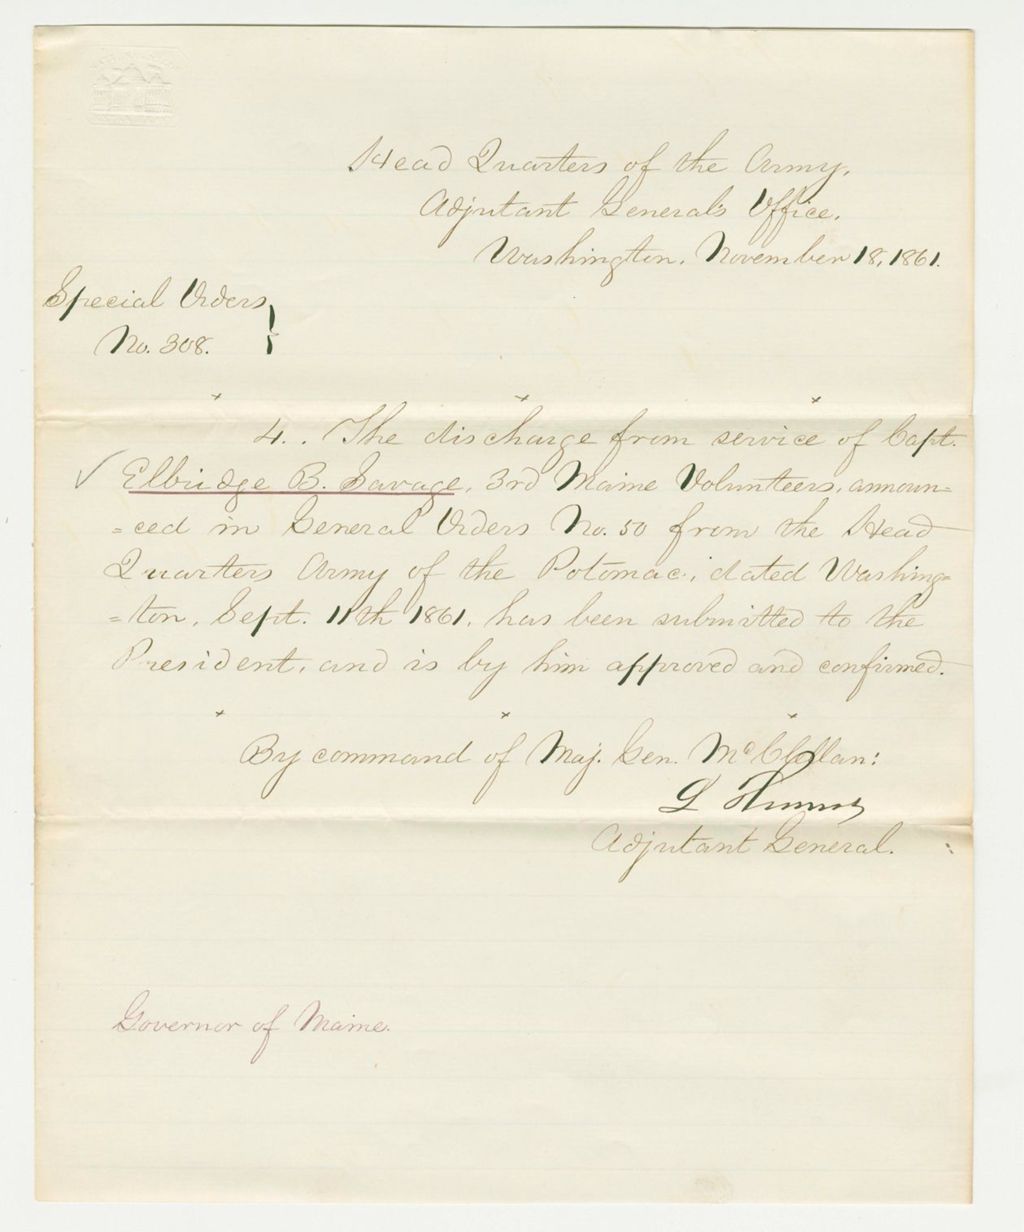 Head Quarters of the Army,
Adjutant General's Office,
Washington, November 18, 1861.
Special Orders,
No. 308.
4. . The discharge from service of Capt.
Elbridge B. Savage, 3rd Maine Volunteers, announ=
=ced in General Orders No. 50 from the Head
Quarters Army of the Potomac, dated Washing=
=ton, Sept. 11th 1861, has been submitted to the
President, and is by him approved and confirmed.
By command of Maj. Gen. McClellan:
L Thomas
Adjutant General.
Governor of Maine.